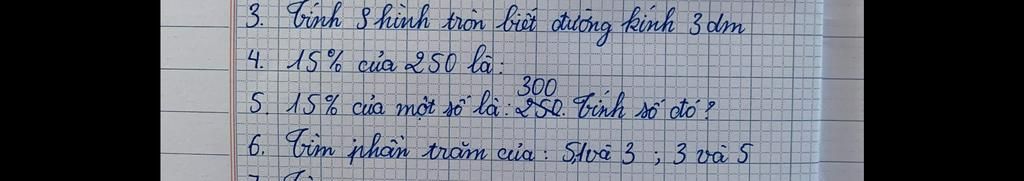 3. Tính S hình tròn biết đường kính 3 dm
4. 15% của 250 là:
300
5. 15% của một số là: 250. Tính số đó?
6. Tìm phần trăm của: 5 và 3 ; 3 và 5